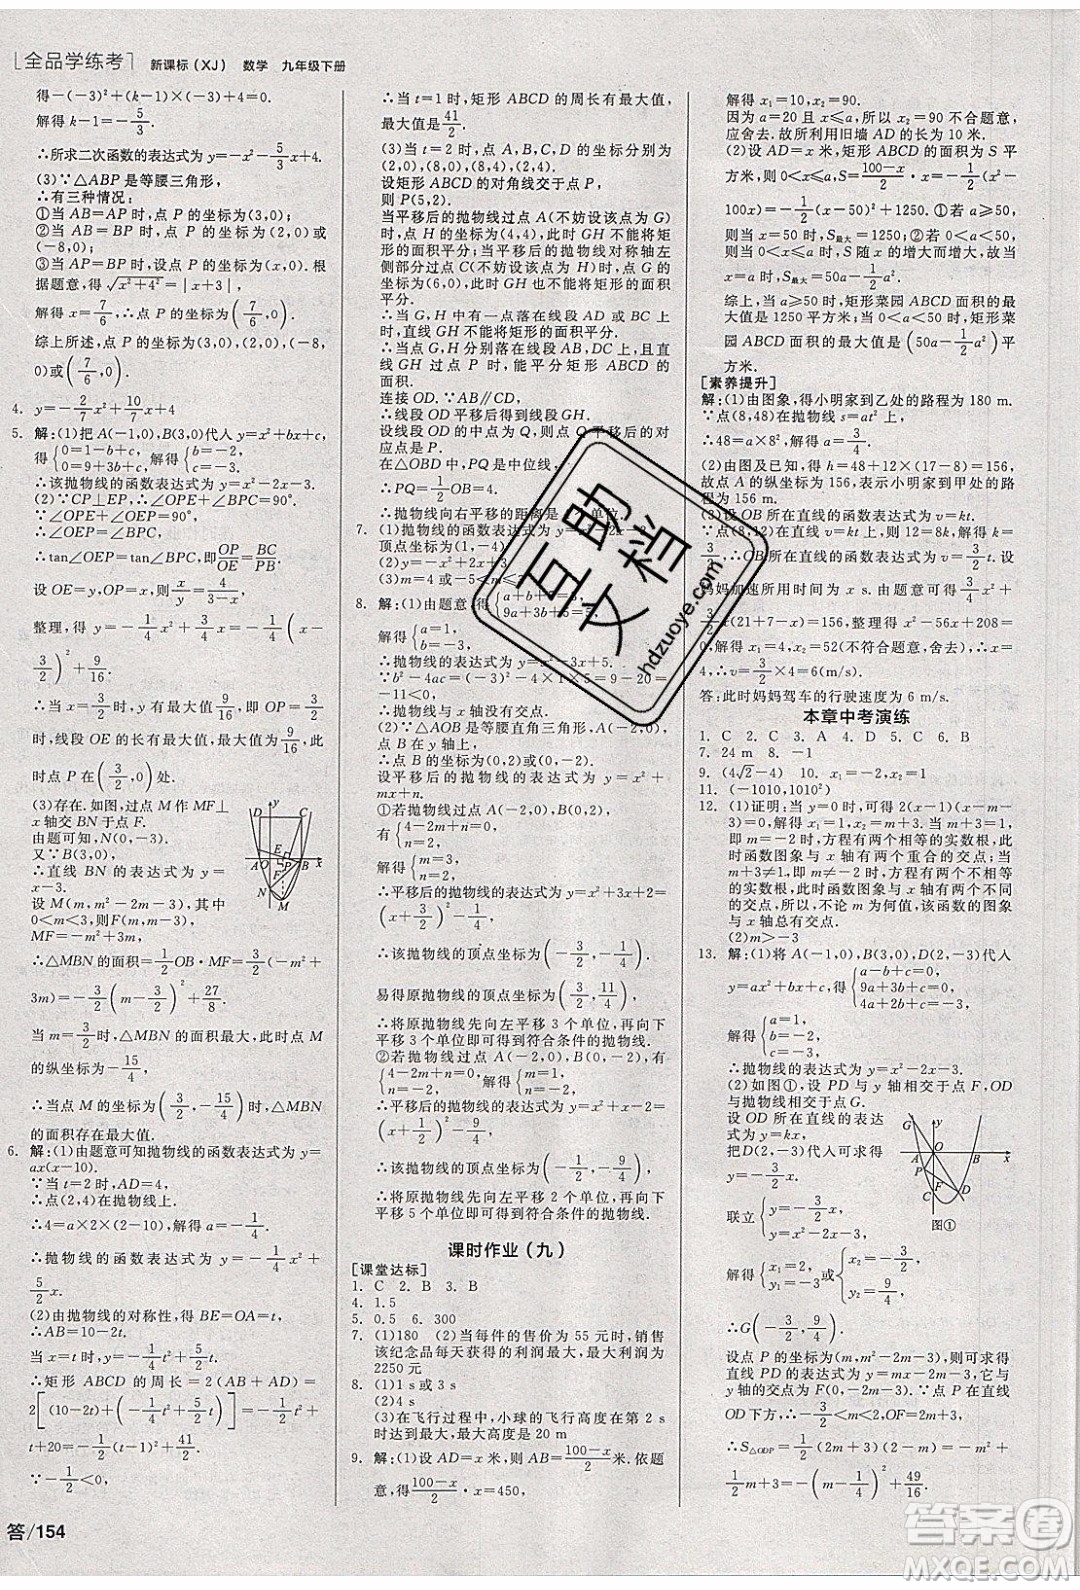 全品学练考 新课标(XJ) 数学 九年级下册
得-(-3)²+(k-1)×(-3)+4=0.
解得 k-1=-5/3.
∴所求二次函数的表达式为 y=-x²-5/3x+4.
(3)∵△ABP 是等腰三角形,
∴有三种情况:
①当 AB=AP 时,点 P 的坐标为(3,0);
②当 AB=BP 时,点 P 的坐标为(2,0)或
(-8,0);
③当 AP=BP 时,设点 P 的坐标为(x,0). 根
据题意,得√(x²+4²)=|x+3|,
解得 x=7/6,∴点 P 的坐标为(7/6,0).
综上所述,点 P 的坐标为(3,0)或(2,0)或(-8,
0)或(7/6,0).
4. y=-2/7x²+10/7x+4
5. 解:(1)把 A(-1,0),B(3,0)代入 y=x²+bx+c,
得{0=1-b+c, 0=9+3b+c, 解得{b=-2, c=-3.
∴该抛物线的函数表达式为 y=x²-2x-3.
(2)∵CP⊥EP,∴∠OPE+∠BPC=90°.
∵∠OPE+∠OEP=90°,
∴∠OEP=∠BPC,
∴tan∠OEP=tan∠BPC,即OP/OE=BC/PB.
设 OE=y,OP=x,则 x/y=4/(3-x),
整理,得 y=-1/4x²+3/4x=-1/4(x-
3/2)²+9/16,
∴当 x=3/2 时,y最大=9/16,即 OP=3/2
时,线段 OE 的长有最大值,最大值为 9/16,此
时点 P 在(3/2,0)处.
(3)存在. 如图,过点 M 作 MF⊥
x 轴交 BN 于点 F.
由题可知,N(0,-3).
又∵B(3,0),
∴直线 BN 的表达式为 y=x-3.
设 M(m,m²-2m-3),其中
0<m<3,则F(m,m-3),
MF=-m²+3m,
∴△MBN 的面积=1/2OB·MF=3/2(-m²+
3m)=-3/2(m-3/2)²+27/8,
当 m=3/2 时,△MBN 的面积最大,此时点 M
的纵坐标为-15/4,
∴当点 M 的坐标为(3/2,-15/4)时,△MBN
的面积存在最大值.
6. 解:(1)由题意可知抛物线的函数表达式为 y=
ax(x-10).
∵当 t=2 时,AD=4,
∴点(2,4)在抛物线上,
∴4=a×2×(2-10),解得 a=-1/4,
∴抛物线的函数表达式为 y=-1/4x²+
5/2x.
(2)由抛物线的对称性,得 BE=OA=t,
∴AB=10-2t.
当 x=t 时,AD=-1/4t²+5/2t,
∴矩形 ABCD 的周长=2(AB+AD)=
2[(10-2t)+(-1/4t²+5/2t)]=-1/2t²+
t+20=-1/2(t-1)²+41/2.
∵-1/2<0,
答/154
∴当 t=1 时,矩形 ABCD 的周长有最大值,
最大值为41/2.
(3)当 t=2 时,点 A,B,C,D 的坐标分别为
(2,0),(8,0),(8,4),(2,4).
设矩形 ABCD 的对角线交于点 P,
则 P(5,2).
当平移后的抛物线过点 A(不妨设为点 G)
时,点 H 的坐标为(4,4),此时 GH 不能将矩
形的面积平分;当平移后的抛物线对称轴左
侧部分过点 C(不妨设为点 H)时,点 G 的坐
标为(6,0),此时 GH 不能将矩形的面积
平分.
∴当 G,H 中有一点在线段 AD 或 BC 上
时,直线 GH 不能将矩形的面积平分.
∴当点 G,H 分别落在线段 AB,DC 上,且
直线 GH 过点 P 时,GH 平分矩形 ABCD 的
面积.
连接 OD. ∵AB∥CD,
∴线段 OD 平移后得到线段 GH,
设线段 OD 的中点为 Q,则平移后点 Q 的对
应点是 P.
在△OBD 中,PQ 是中位线,
∴PQ=1/2OB=4.
∴抛物线向右平移的距离是4个单位.
7. (1)抛物线的函数表达式为 y=x²-2x-3,
顶点坐标为(1,-4)
(2)y=-x²
(3)m=4 或-5<m≤0
8. 解:(1)由题意,得{a+b+3=5, 9a+3b+3=5.
解得{a=1,
∴抛物线的表达式为 y=x²
∵b²-4ac=
∴抛物线与 x 轴没有交点.
(2)∵△AOB 是等腰直角三角形,A(-2,0),
点 B 在 y 轴上,
∴点 B 的坐标为(0,2)或(0,-2).
设平移后的抛物线的表达式为 y=x²+
mx+n.
①若抛物线过点 A(-2,0),B(0,2),
有{4-2m+n=0, n=2,
解得{m=3, n=2,
∴平移后的抛物线的表达式为 y=x²+3x+2=
(x+3/2)²-1/4,
∴该抛物线的顶点坐标为(-3/2,-1/4).
易得原抛物线的顶点坐标为(-3/2,11/4),
∴将原抛物线先向左平移 3 个单位,再向下平
移 3 个单位即可得到符合条件的抛物线.
②若抛物线过点 A(-2,0),B(0,-2),
有{4-2m+n=0, n=-2, 解得{m=1, n=-2,
∴平移后的抛物线的表达式为 y=x²+x-2=
(x+1/2)²-9/4,
∴该抛物线的顶点坐标为(-1/2,-9/4),
∴将原抛物线先向左平移 2 个单位,再向
下平移 5 个单位即可得到符合条件的抛物线.
课时作业(九)
[课堂达标]
1. C 2. B 3. B
4. 1.5
5. 0.5 6. 300
7. (1)180 (2)当每件的售价为 55 元时,销售
该纪念品每天获得的利润最大,最大利润为
2250 元
8. (1)1 s或3 s
(2)4 s
(3)在飞行过程中,小球的飞行高度在第 2 s
时达到最大,最大高度是 20 m
9. 解:(1)设 AD=x 米,则 AB=(100-x)/2米. 依题
意,得(100-x)/2·x=450,
解得 x₁=10,x₂=90.
因为 a=20 且 x≤a,所以 x₂=90 不合题意,
应舍去. 故所利用旧墙 AD 的长为 10 米.
(2)设 AD=x 米,矩形 ABCD 的面积为 S 平
方米,则 0<x≤a,S=(100-x)/2·x=-1/2(x²-
100x)=-1/2(x-50)²+1250. ①若 a≥50,
则当 x=50 时,S最大=1250;②若 0<a<50,
则当 0<x≤a 时,S 随 x 的增大而增大,故当
x=a 时,S最大=50a-1/2a².
综上,当 a≥50 时,矩形菜园 ABCD 的面积最
大值是 1250 平方米;当 0<a<50 时,矩形菜园
ABCD 的面积的最大值是(50a-1/2a²)平
方米.
[素养提升]
解:(1)由图象,得小明家到乙处的路程为 180 m.
∵点(8,48)在抛物线 s=at² 上,
∴48=a×8²,解得 a=3/4.
(2)由图及已知,得 h=48+12×(17-8)=156,
故点 A 的纵坐标为156,表示小明家到甲处的路程
为156 m.
(3)设 OB 所在直线的函数表达式为 v=kt.
∵点(8,12)在直线 OB 上,则 12=8k,解得 k=
3/2,∴OB 所在直线的函数表达式为 v=3/2t.设
妈妈加速所用时间为 x s. 由题意,得
x(21+7-x)=156,整理,得 x²-56x+208=
0. 解得 x₁=4,x₂=52(不符合题意,舍去).
∴x=4,∴v=3/2×4=6(m/s).
答:此时妈妈驾车的行驶速度为 6 m/s.
本章中考演练
1. C 2. C 3. A 4. D 5. C 6. B
7. 24 m 8. -1
9. (4√2-4) 10. x₁=-2,x₂=1
11. (-1010,1010²)
12. (1)证明:当 y=0 时,2(x-1)(x-m-
3)=0,解得 x₁=1,x₂=m+3. 当 m+3=1,
即 m=-2 时,方程有两个相等的实数根,此
时函数图象与 x 轴有两个重合的交点;当
m+3≠1,即 m≠-2 时,方程有两个不相等
的实数根,此时函数图象与 x 轴有两个不同
的交点. 所以,不论 m 为何值,该函数的图象
与 x 轴总有交点.
(2)m>-3
13. 解:(1)将 A(-1,0),B(3,0),D(2,-3)代入
y=ax²+bx+c,得{a-b+c=0, 9a+3b+c=0, 4a+2b+c=-3,
解得{a=1, b=-2, c=-3.
∴抛物线的表达式为 y=x²-2x-3.
(2)如图①,设 PD 与 y 轴交于点 F,OD
与抛物线交于点G.
设 OD 所在直线的表达式
为 y=kx,
把D(2,-3)代入可求得
y=-3/2x.
联立{y=x²-2x-3, y=-3/2x,
图①
解得{x₁=2, y₁=-3, {x₂=-3/2, y₂=9/4,
∴G(-3/2,9/4).
设点 P 的坐标为(m,m²-2m-3),可求得
直线 PD 的表达式为 y=mx-2m-3,它与
y 轴的交点为F(0,-2m-3). 因点 P 在直线
OD 下方,∴-3/2<m<2,OF=2m+3,
∴S△ODP=1/2(2m+3)(2-m)=-m²+
1/2m+3=-(m-1/4)²+49/16.
互助文档
hdzuoye.com
答案卷
MXQE.COM